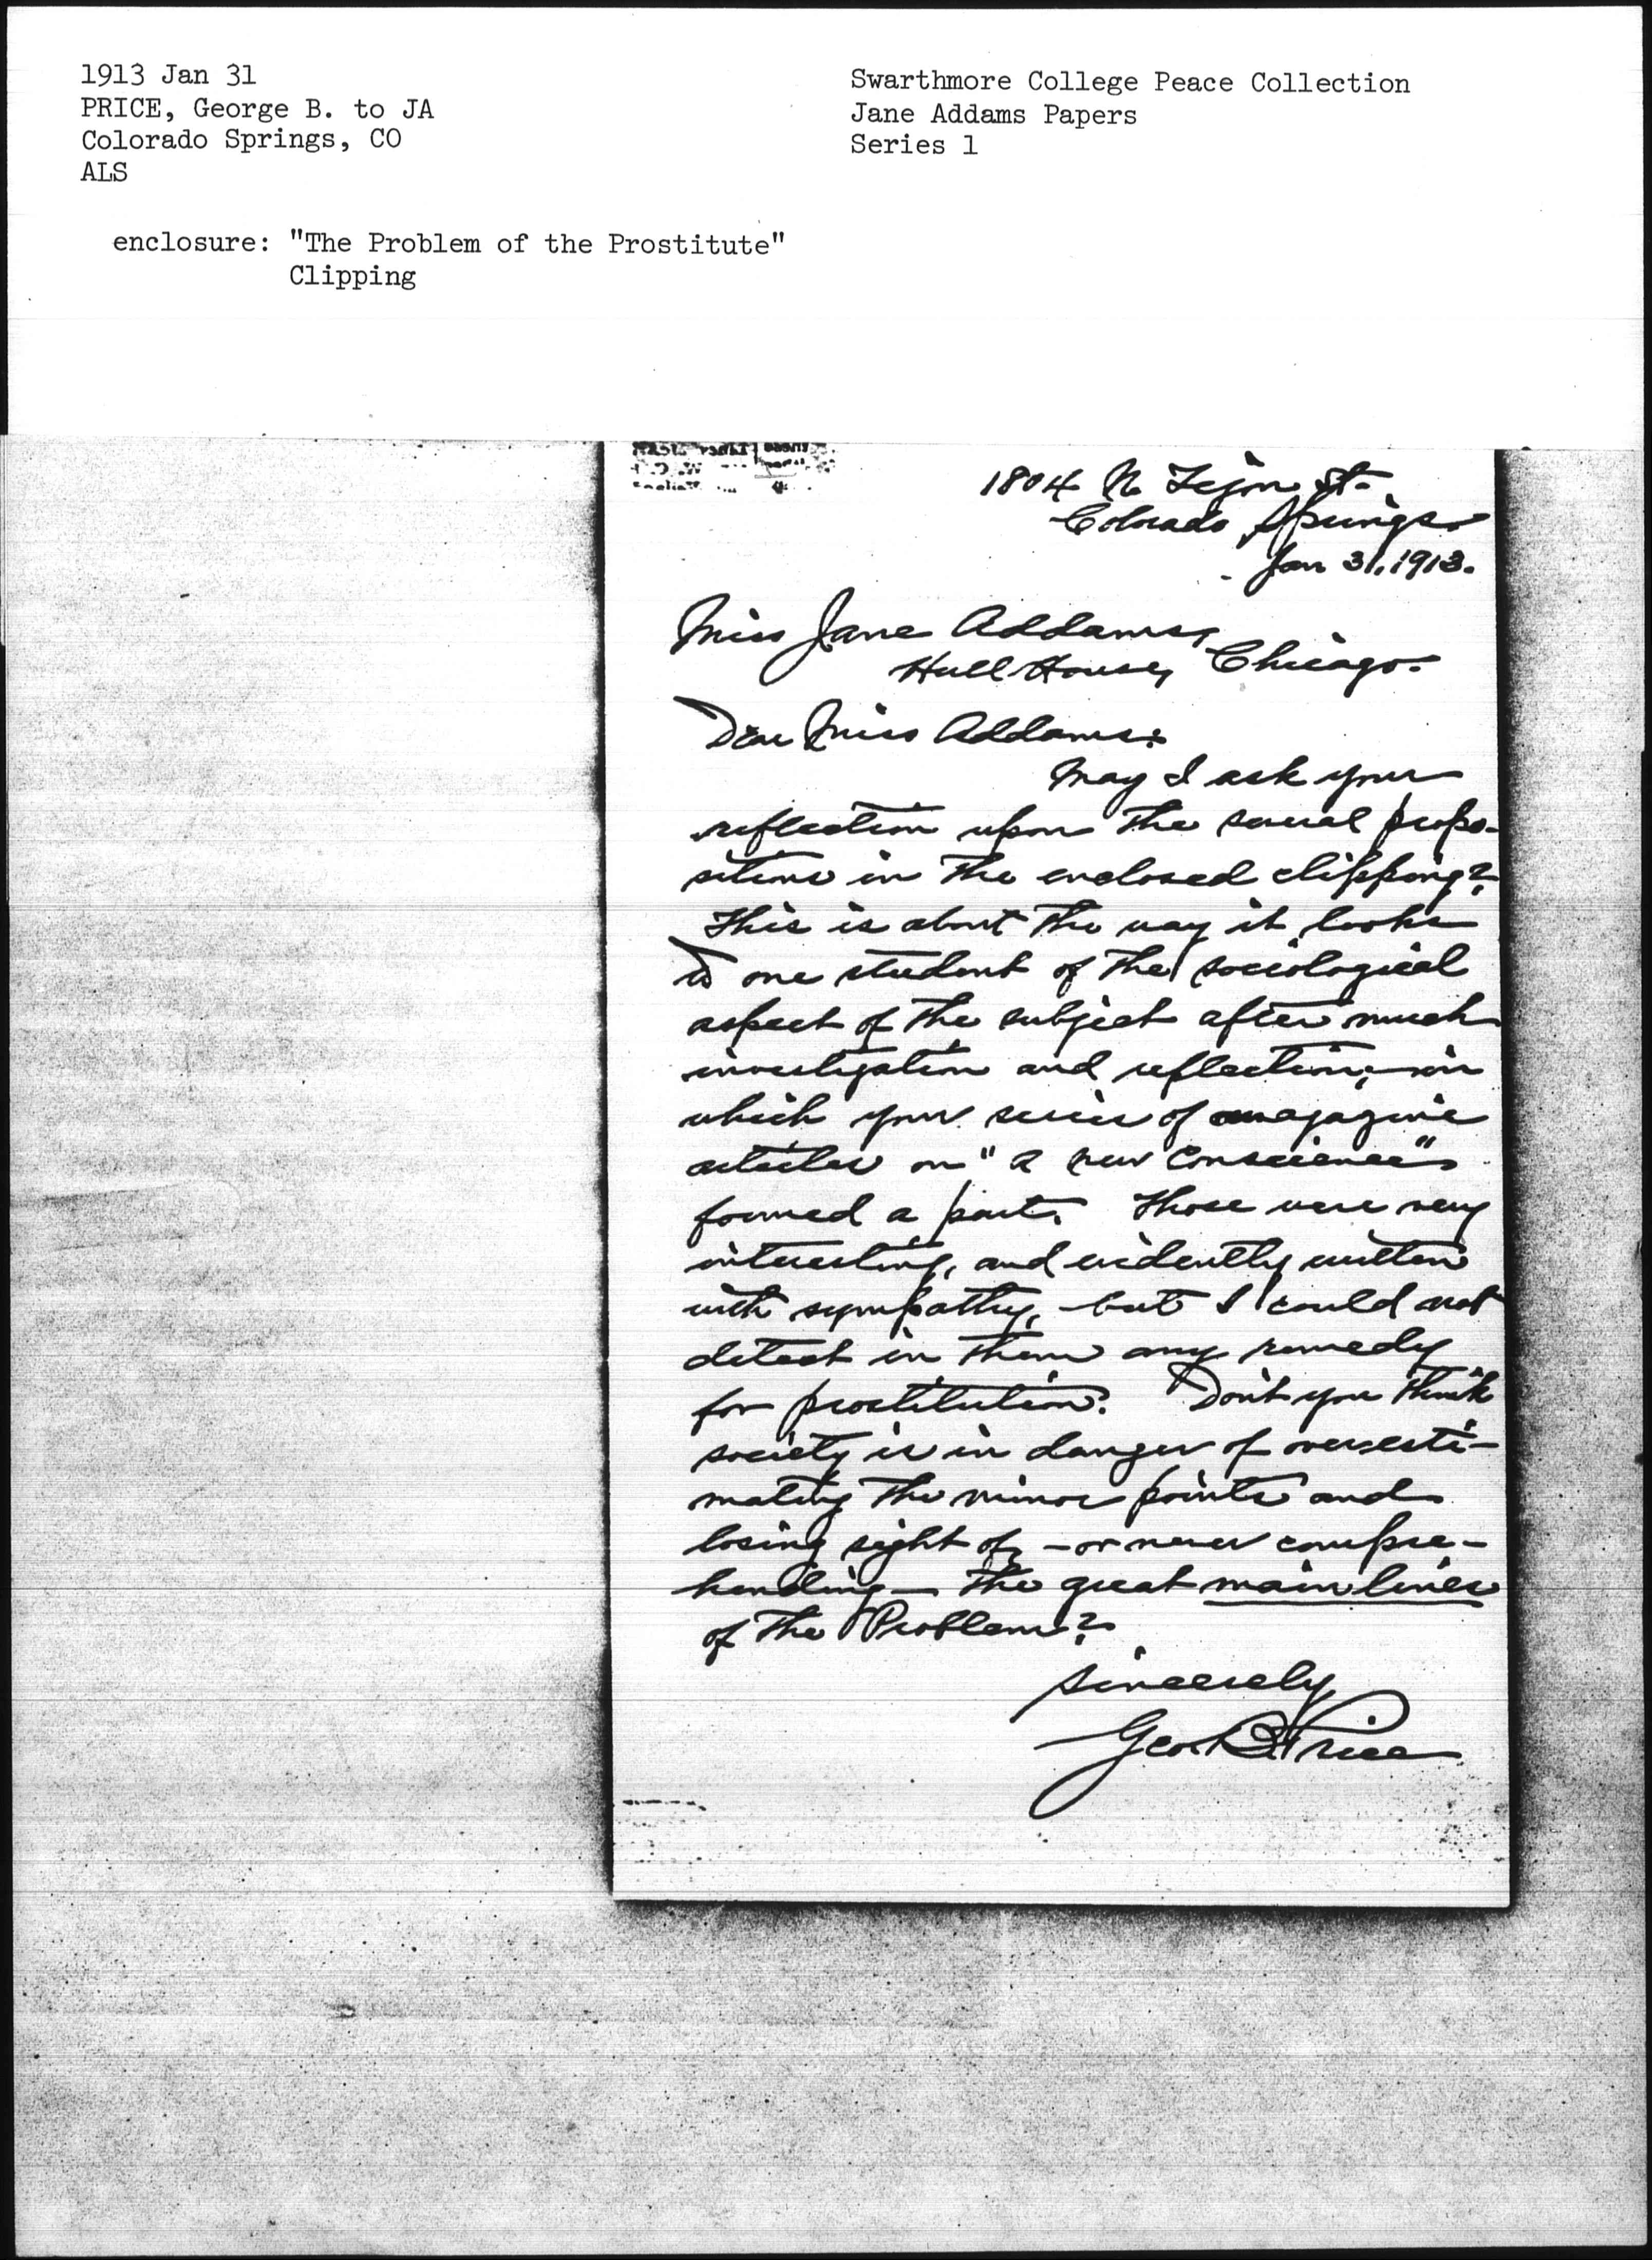 1913 Jan 31
PRICE, George B. to JA
Colorado Springs, CO
ALS
enclosure: "The Problem of the Prostitute"
Clipping
Swarthmore College Peace Collection
Jane Addams Papers
Series 1
1804 N Tejon St.
Colorado Springs
Jan 31, 1913.
Miss Jane Addams,
Hull House, Chicago.
Dear Miss Addams:
May I ask your
reflection upon the several propo-
sitions in the enclosed clipping?
This is about the way it looks
to one student of the sociological
aspect of the subject after much
investigation and reflection, in
which your series of magazine
articles on "a new Conscience"
formed a part. Those were very
interesting, and evidently written
with sympathy, but I could not
detect in them any remedy
for prostitution. Don't you think
society is in danger of oversesti-
mating the minor points and
losing sight of, - or never compre-
hending - the great main lines
of the Problem?
Sincerely
Geo. B. Price